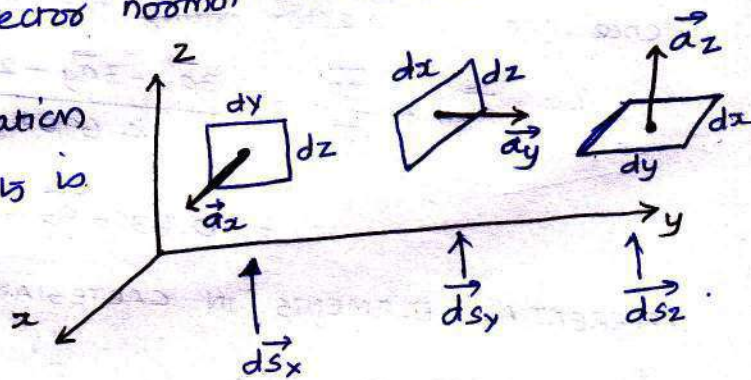 ector normal
ation
is
z
dy
dz
a⃗x
dx
dz
a⃗y
a⃗z
dx
dy
y
x
ds⃗x
ds⃗y
ds⃗z.